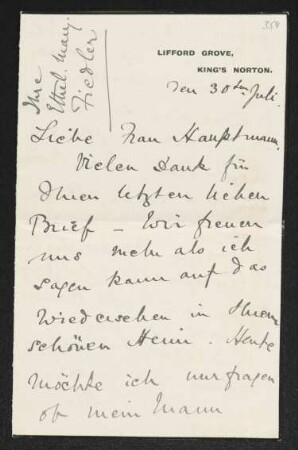 358
LIFFORD GROVE,
KING'S NORTON.
den 30ten Juli.
Liebe Frau Hauptmann,
Vielen Dank für
Ihren letzten lieben
Brief – Wir freuen
uns mehr als ich
sagen kann auf das
Wiedersehen in Ihrem
schönen Heim. Heute
möchte ich nur fragen
ob mein Mann
Ihre
Ethel Mary
Fiedler